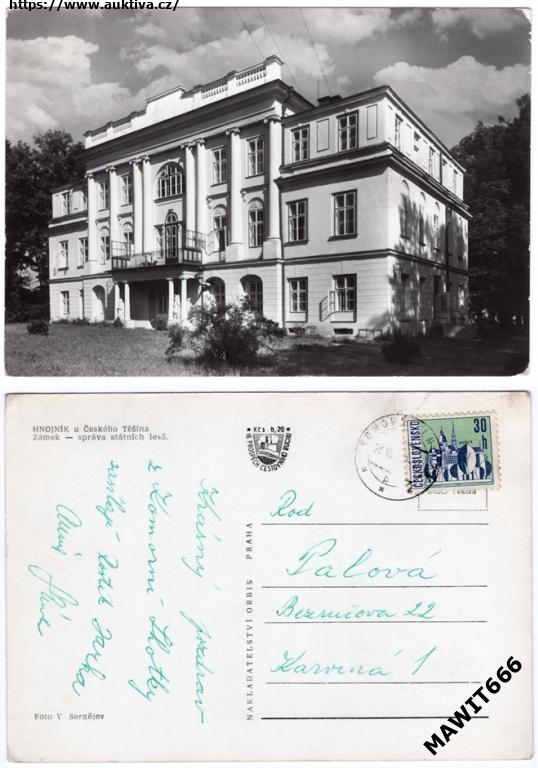 https://www.auktiva.cz/
HNOJNÍK u Českého Těšína
Zámek — správa státních lesů.
Kčs 0,20
VE PROSPĚCH CESTOVNÍHO RUCHU
ČESKOSLOVENSKO
30 h
Krásný pozdrav
z Komorní Lhotky
zasílají Zostík Jarka
NAKLADATELSTVÍ ORBIS PRAHA
Rod
Palová
Bezručova 22
Karviná 1
Foto V Sergějev
MAWIT666